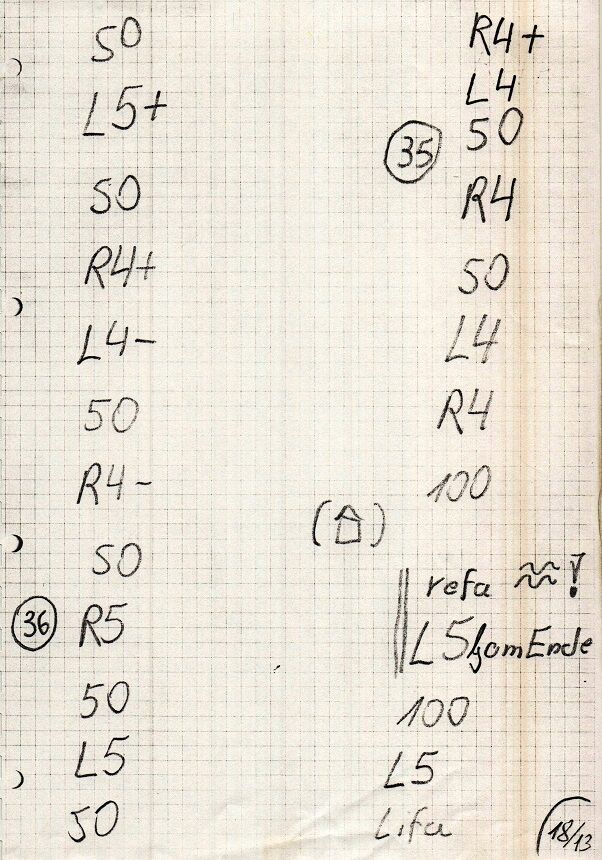 50
L5+
50
R4+
L4-
50
R4-
50
36 R5
50
L5
50
R4+
L4
35 50
R4
50
L4
R4
100
refa !
L5 amEnde
100
L5
Lifa
18/13